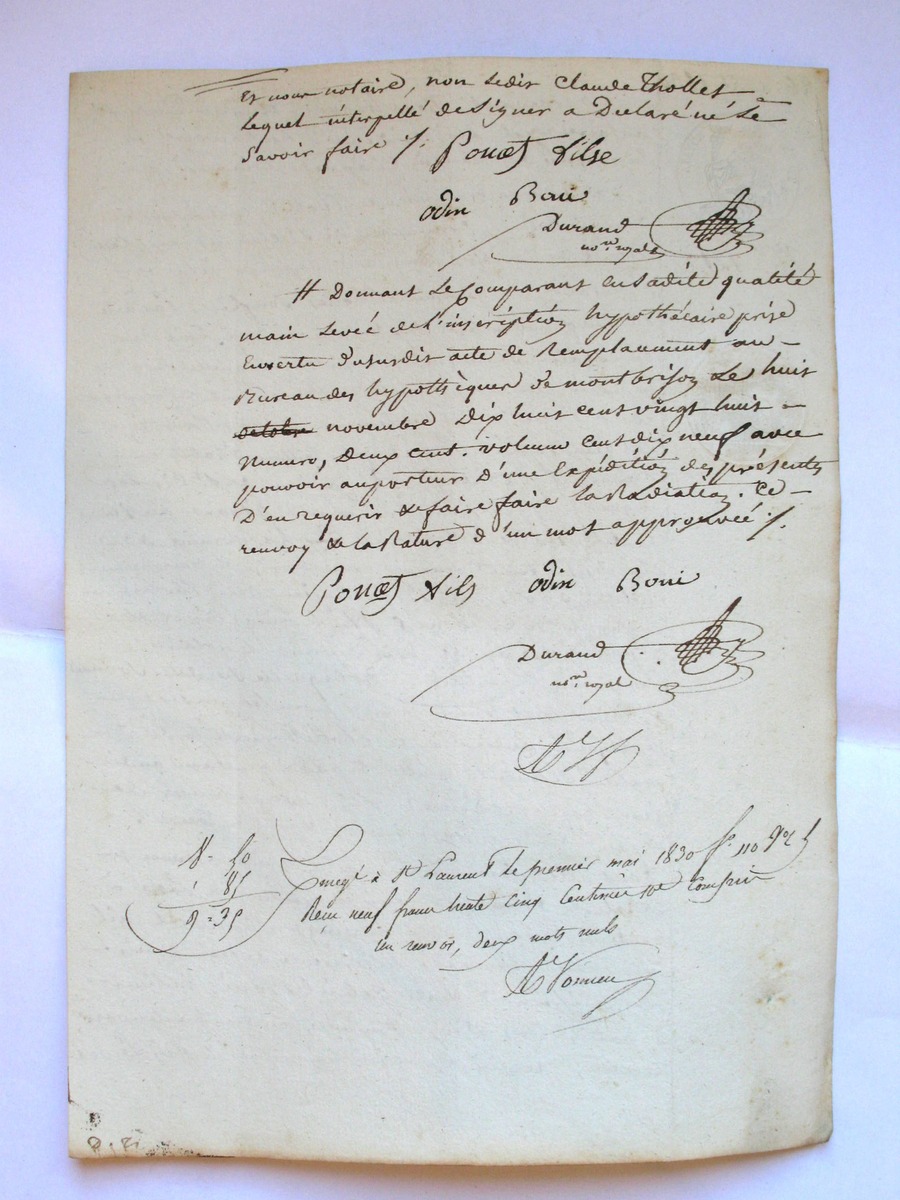 Et nous notaire, non ledit Claude Thollet
Lequel interpellé de signer a Déclaré né le
savoir faire ./.
Pouet fils
odin Boui
Durand
not.re royal
# Donnant le Comparant en sadite qualité
main levée de l'inscription hypothécaire prise
En vertu d'ususdit acte de Remplacement au
Bureau des hypothèques de montbrison Le huit
octobre novembre Dix huit cent vingt huit
Numero, Deux cent. volume cent dix neuf avec
pouvoir au porteur D'une Expédition des présentes
D'en requerir & faire faire la Radiation. Ce
renvoy & la Rature d'un mot approuvéé ./.
Pouet fils odin Boui
Durand
not.re royal
8- 50
85
9 = 35
Enregé à St Laurent le premier mai 1830 f° 110
Reçu neuf francs trente cinq Centimes Compris
un renvoi, deux mots nuls